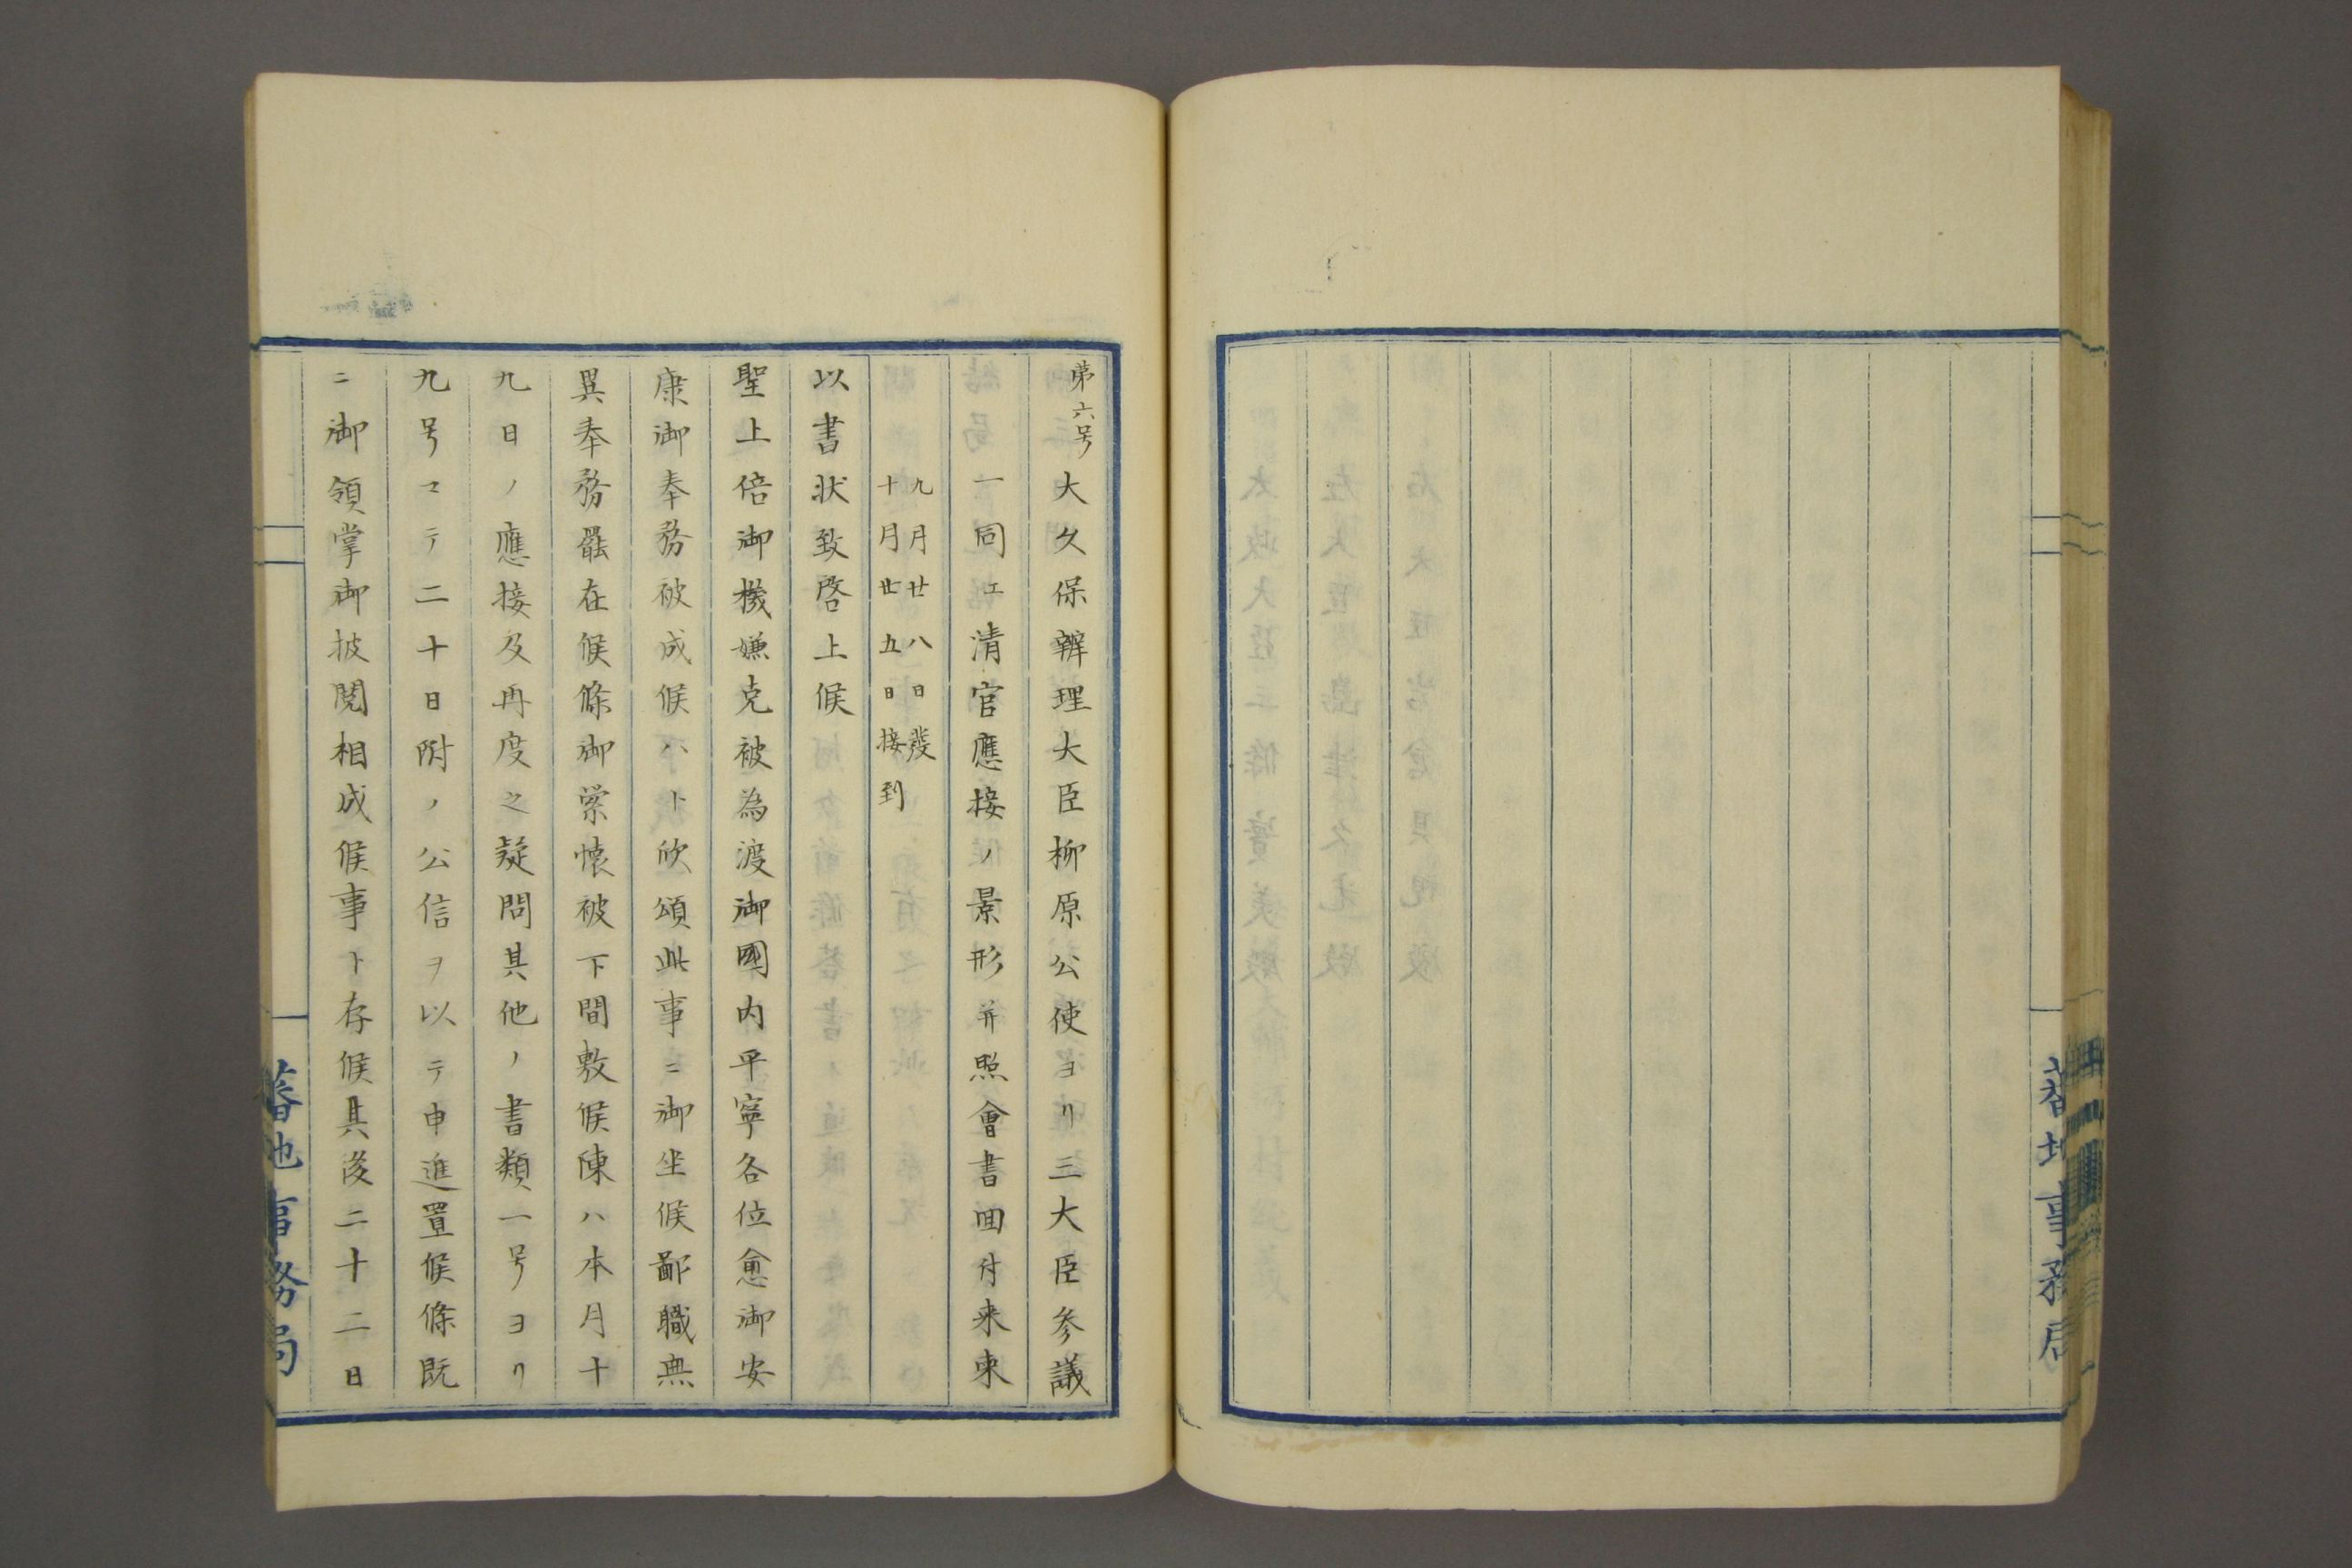 蕃地事務局
第六号大久保辨理大臣柳原公使ヨリ三大臣参議
一同エ清官應接ノ景形并照會書面付来柬
九月廿八日發
十月廿五日接到
以書状致啓上候
聖上倍御機嫌克被為渡御國内平寧各位愈御安
康御奉務被成候ハト欣頌此事ニ御坐候鄙職無
異奉務罷在候條御縈懐被下間敷候陳ハ本月十
九日ノ應接及再度之疑問其他ノ書類一号ヨリ
九号マテ二十日附ノ公信ヲ以テ申進置候條既
ニ御領掌御披閲相成候事ト存候其後二十二日
蕃地事務局